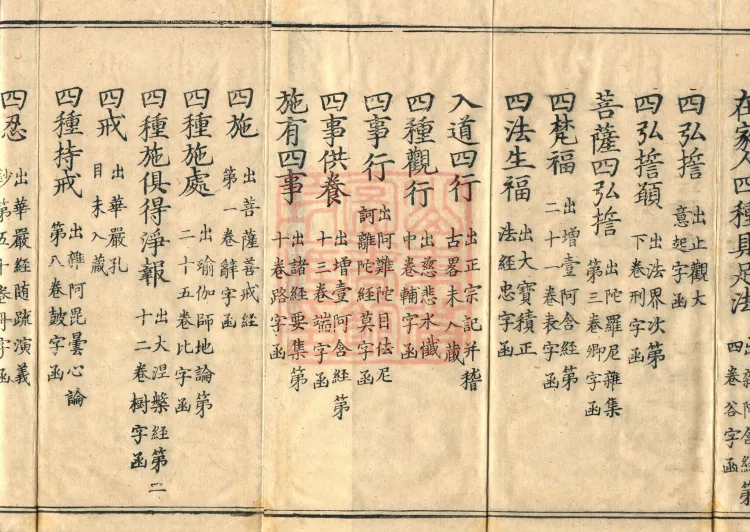 在家人四種具足法 出雜阿含經第
四卷谷字函
四弘誓 出止觀大
意起字函
四弘誓願 出法界次第
下卷刑字函
菩薩四弘誓 出陀羅尼雜集
第三卷卿字函
四梵福 出增壹阿含經第
二十一卷表字函
四法生福 出大寶積正
法經忠字函
入道四行 出正宗記并稽
古畧未入藏
四種觀行 出慈悲水懺
中卷輔字函
四事行 出阿難陀目佉尼
訶離陀經莫字函
四事供養 出增壹阿含經第
十三卷端字函
施有四事 出諸經要集第
十卷路字函
四施 出菩薩善戒經
第一卷辭字函
四種施處 出瑜伽師地論第
二十五卷比字函
四種施俱得淨報 出大涅槃經第二
十二卷樹字函
四戒 出華嚴孔
目未入藏
四種持戒 出雜阿毘曇心論
第八卷鼓字函
四忍 出華嚴經隨疏演義
鈔第五十卷 字函